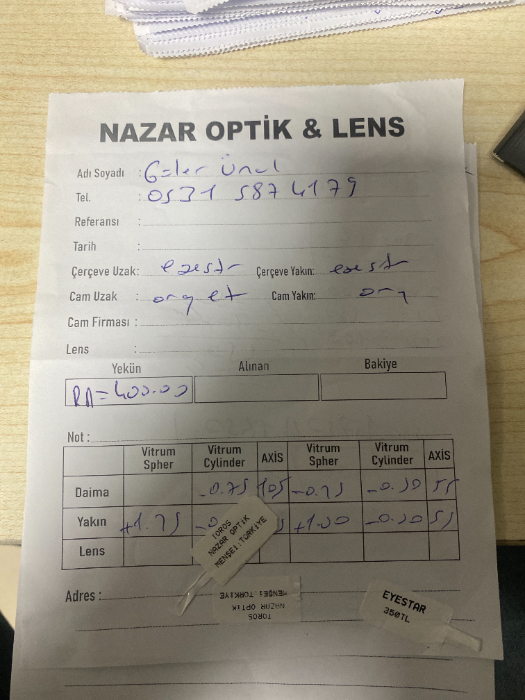 NAZAR OPTİK & LENS
Adı Soyadı : Güler Ünal
Tel. : 0531 587 4179
Referansı :
Tarih :
Çerçeve Uzak: Çerçeve Yakın:
Cam Uzak : org Cam Yakın: org
Cam Firması :
Lens :
Yekün Alınan Bakiye
=400.00
Not :
Vitrum Spher Vitrum Cylinder AXİS Vitrum Spher Vitrum Cylinder AXİS
Daima -0.75 105 -0.75 -0.50 55
Yakın +1.75 +1.00 -0.50 55
Lens
TOROS
NAZAR OPTİK
MENŞEİ:TÜRKİYE
Adres :
TOROS
NAZAR OPTİK
MENŞEİ:TÜRKİYE
EYESTAR
350TL